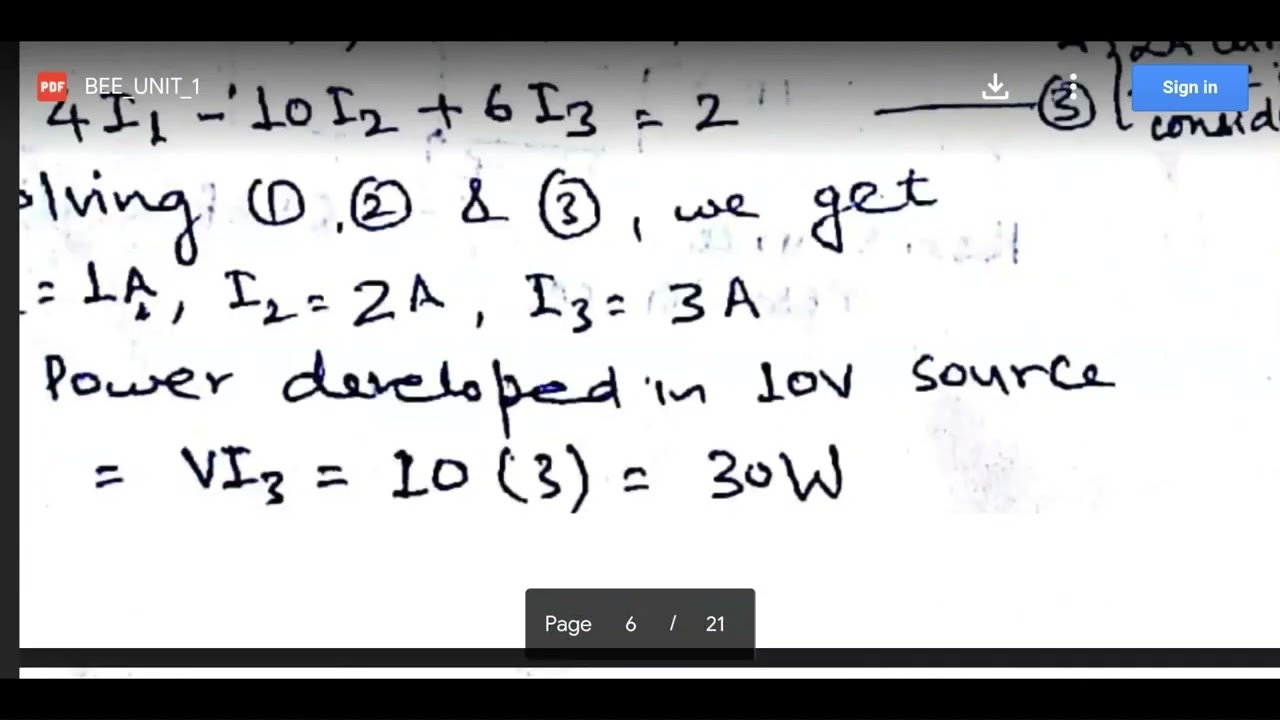 BEE_UNIT_1
Sign in
4I₁ - 10I₂ + 6I₃ = 2 ——— ③
olving ①, ② & ③, we get
= 1A, I₂ = 2A, I₃ = 3A
Power developed in 10V source
= VI₃ = 10(3) = 30W
Page 6 / 21